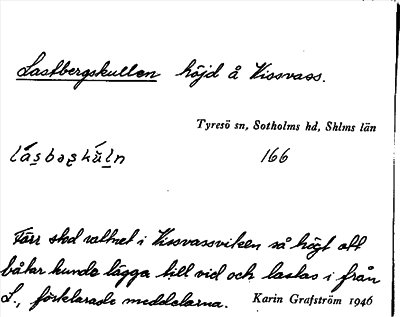 Lastbergskullen höjd å Vissvass.
Tyresö sn, Sotholms hd, Shlms län
166
Förr stod vattnet i Vissvassviken så högt att
båtar kunde lägga till vid och lastas i från
L., förklarade meddelarna. Karin Grafström 1946